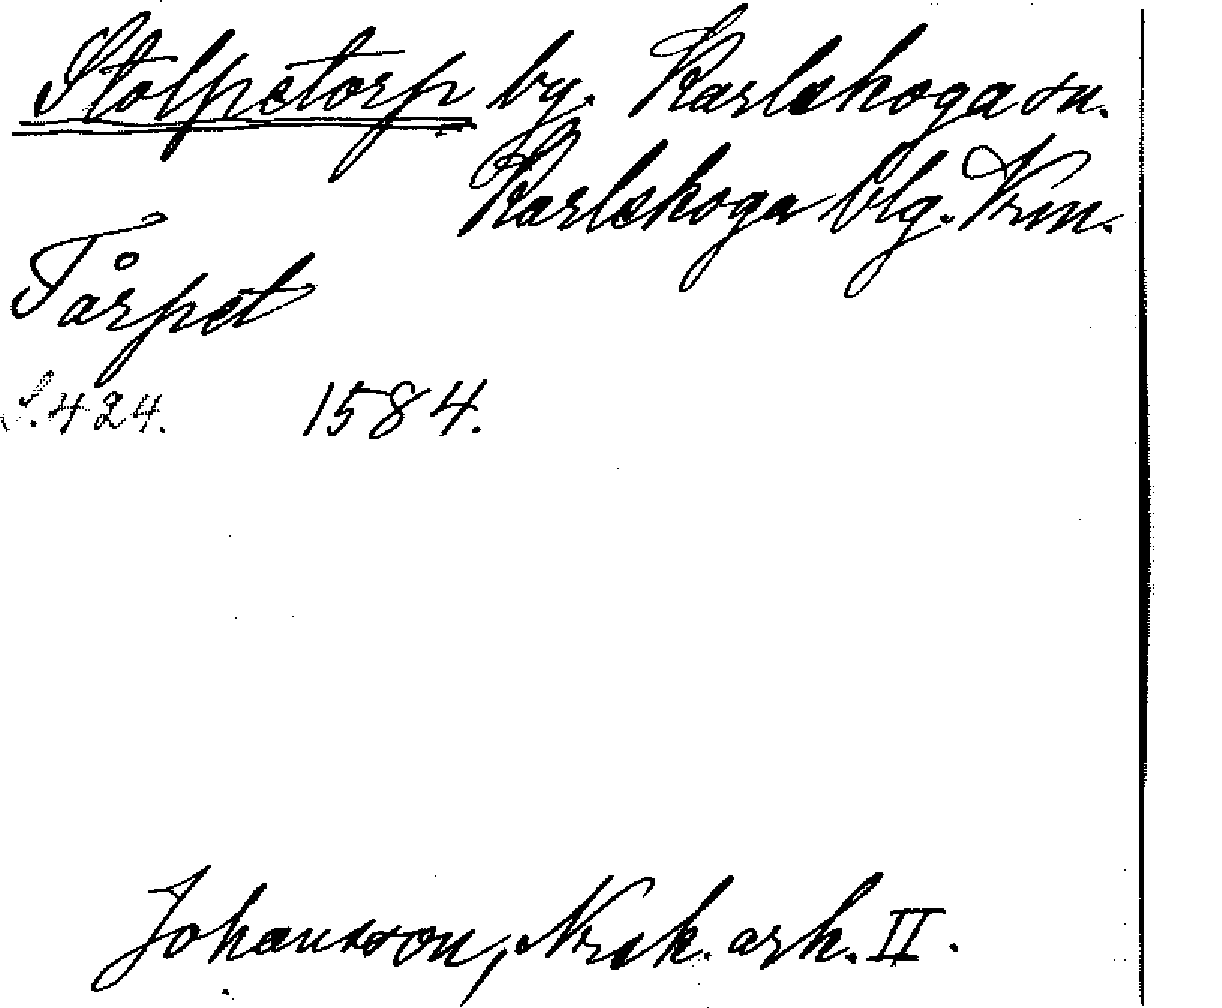 Stolpetorp by. Karlskoga sn.
Karlskoga blg. Vrm.
Tårpet
S. 424. 1584.
Johansson, Norsk. ark. II.